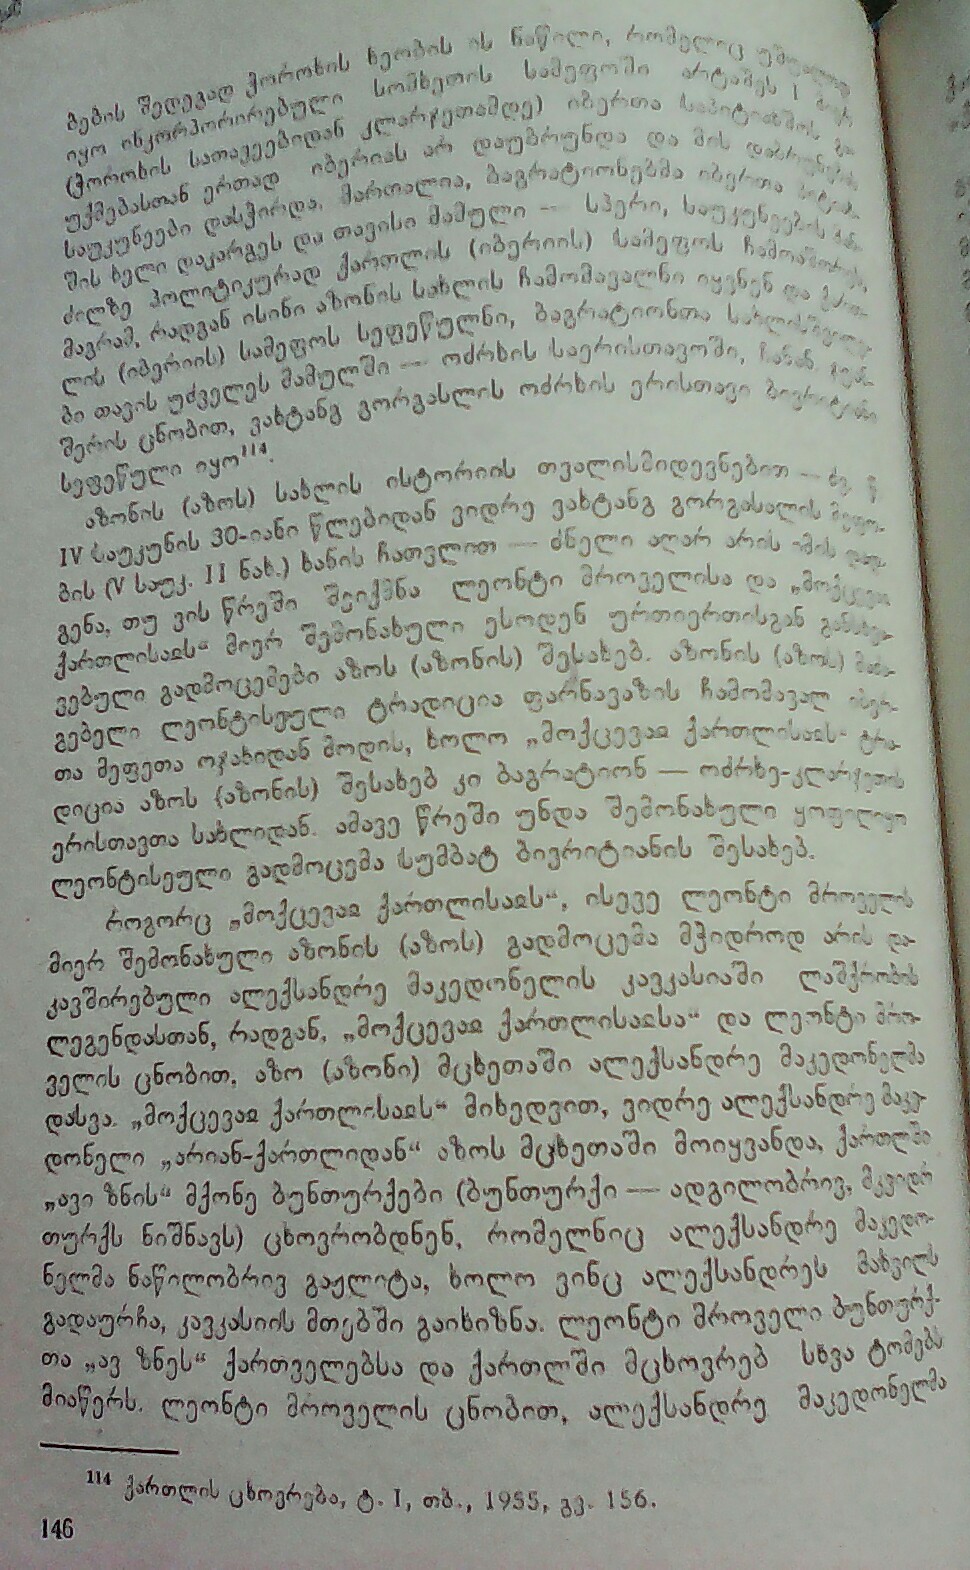 ბების შედეგად ჭოროხის ხეობის ის ნაწილი, რომელიც უშუალოდ
იყო ინკორპორირებული სომხეთის სამეფოში არტაშეს I მიერ
(ჭოროხის სათავეებიდან კლარჯეთამდე) იბერთა საპიტიახშოს გა-
უქმებასთან ერთად იბერიას არ დაუბრუნდა და მის დაბრუნებას
საუკუნეები დასჭირდა. მართალია, ბაგრატიონებმა იბერთა
შის ხელი დაკარგეს და თავისი მამული — სპერი, საუკუნეების მან-
ძილზე პოლიტიკურად ქართლის (იბერიის) სამეფოს ჩამოშორდა,
მაგრამ, რადგან ისინი აზონის სახლის ჩამომავალნი იყვნენ და ქართ-
ლის (იბერიის) სამეფოს სეფეწულნი, ბაგრატიონთა სახლისშვილე-
ბი თავის უძველეს მამულში — ოძრხის საერისთავოში, ჩანან. ჯუან-
შერის ცნობით, ვახტანგ გორგასლის ოძრხის ერისთავი ბივრიტიანი
სეფეწული იყო¹¹⁴.
აზონის (აზოს) სახლის ისტორიის თვალისმიდევნებით — ძვ. წ.
IV საუკუნის 30-იანი წლებიდან ვიდრე ვახტანგ გორგასალის მეფო-
ბის (V საუკ. II ნახ.) ხანის ჩათვლით — ძნელი აღარ არის იმის დად-
გენა, თუ ვის წრეში შეიქმნა ლეონტი მროველისა და „მოქცევაჲ
ქართლისაჲს“ მიერ შემონახული ესოდენ ურთიერთისგან განსხვა-
ვებული გადმოცემები აზოს (აზონის) შესახებ. აზონის (აზოს) მაძა-
გებელი ლეონტისეული ტრადიცია ფარნავაზის ჩამომავალ იბერ-
თა მეფეთა ოჯახიდან მოდის, ხოლო „მოქცევაჲ ქართლისაჲს“ ტრა-
დიცია აზოს (აზონის) შესახებ კი ბაგრატიონ — ოძრხე-კლარჯეთის
ერისთავთა სახლიდან. ამავე წრეში უნდა შემონახული ყოფილიყო
ლეონტისეული გადმოცემა სუმბატ ბივრიტიანის შესახებ.
როგორც „მოქცევაჲ ქართლისაჲს“, ისევე ლეონტი მროველის
მიერ შემონახული აზონის (აზოს) გადმოცემა მჭიდროდ არის და-
კავშირებული ალექსანდრე მაკედონელის კავკასიაში ლაშქრობის
ლეგენდასთან, რადგან, „მოქცევაჲ ქართლისაჲსა“ და ლეონტი მრო-
ველის ცნობით, აზო (აზონი) მცხეთაში ალექსანდრე მაკედონელმა
დასვა. „მოქცევაჲ ქართლისაჲს“ მიხედვით, ვიდრე ალექსანდრე მაკე-
დონელი „არიან-ქართლიდან“ აზოს მცხეთაში მოიყვანდა, ქართლში
„ავი ზნის“ მქონე ბუნთურქები (ბუნთურქი — ადგილობრივ, მკვიდრ
თურქს ნიშნავს) ცხოვრობდნენ, რომელნიც ალექსანდრე მაკედო-
ნელმა ნაწილობრივ გაჟლიტა, ხოლო ვინც ალექსანდრეს მახვილს
გადაურჩა, კავკასიის მთებში გაიხიზნა. ლეონტი მროველი ბუნთურქ-
თა „ავ ზნეს“ ქართველებსა და ქართლში მცხოვრებ სხვა ტომებს
მიაწერს. ლეონტი მროველის ცნობით, ალექსანდრე მაკედონელმა
¹¹⁴ ქართლის ცხოვრება, ტ. I, თბ., 1955, გვ. 156.
146